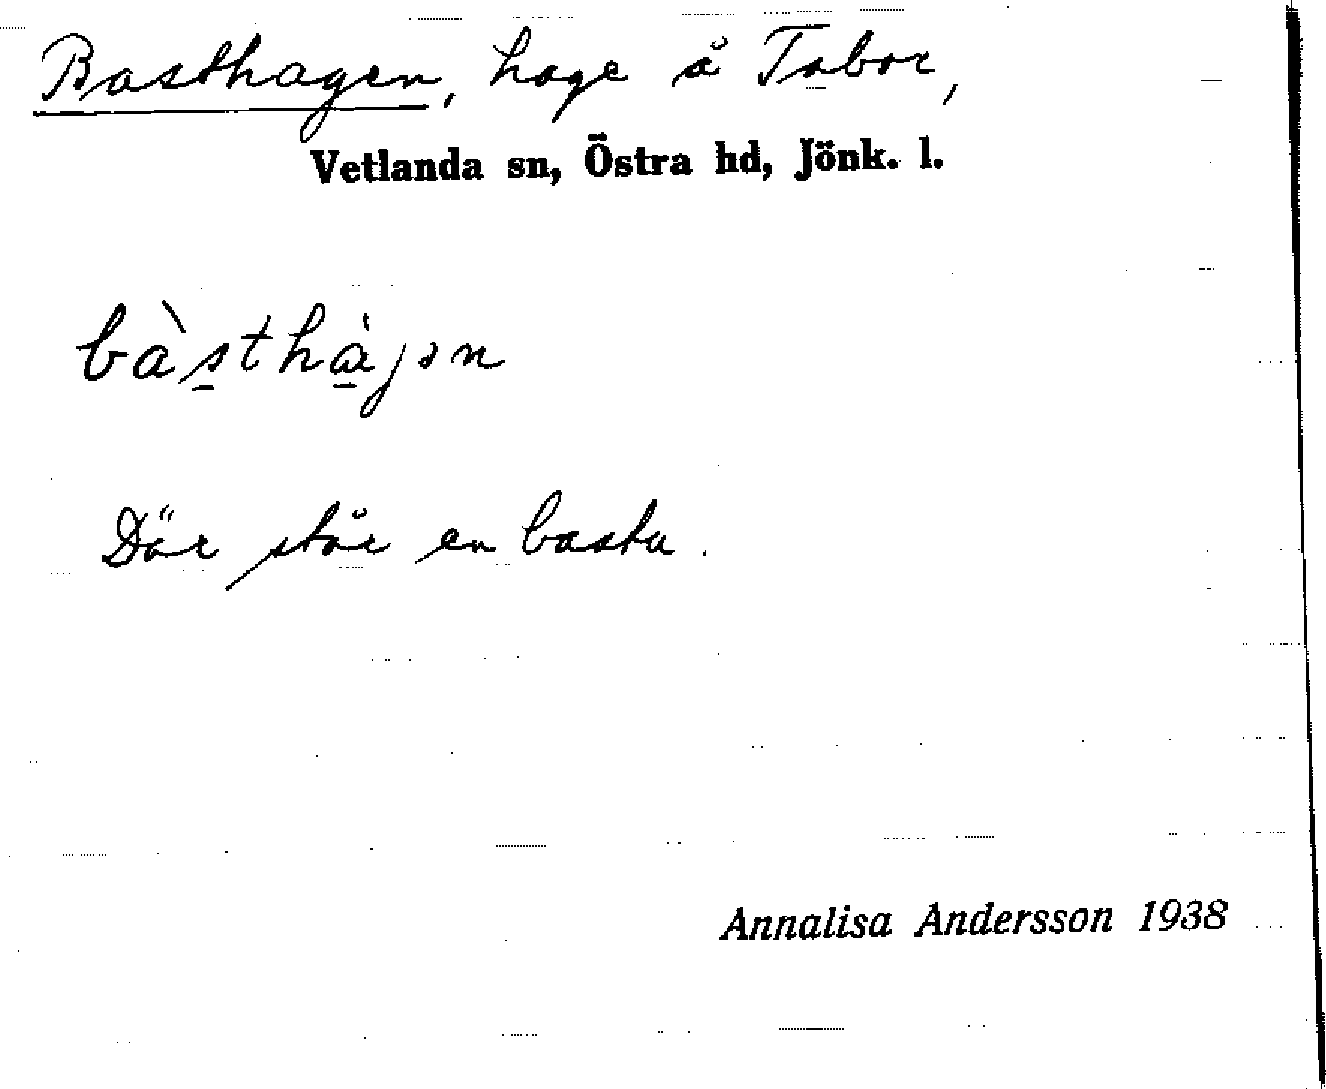 Basthagen, hage å Tabor,
Vetlanda sn, Östra hd, Jönk. l.
bàsthàjən
Där står en bastu.
Annalisa Andersson 1938